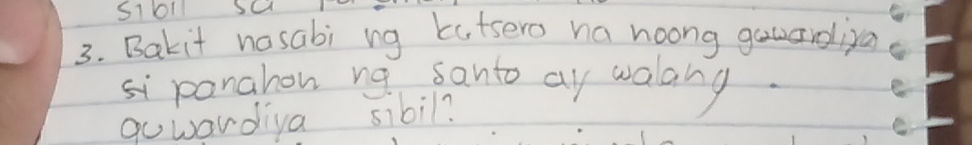 sibil sa
3. Bakit nasabi ng kutsero na noong gawardiya
si panahon ng santo ay walang.
guwardiya sibil?